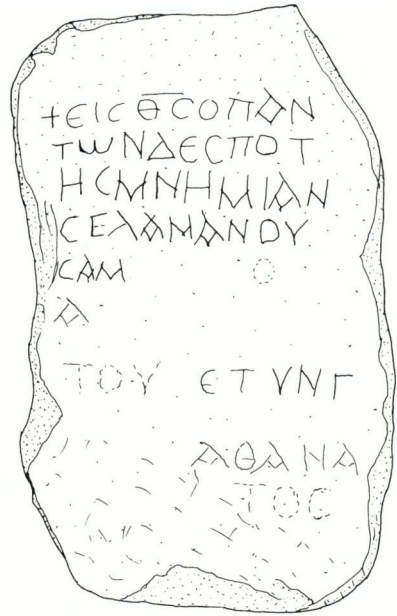 +ΕΙCΘ̅CΟΠΑΝ
ΤωΝΔΕCΠΟΤ
ΗCΜΝΗΜΙΑΝ
CΕΛΑΜΑΝΟΥ
CΑΜ Ο
Α
ΤΟΥ ΕΤΥΝΓ
ΑΘΑΝΑ
ΤΟC